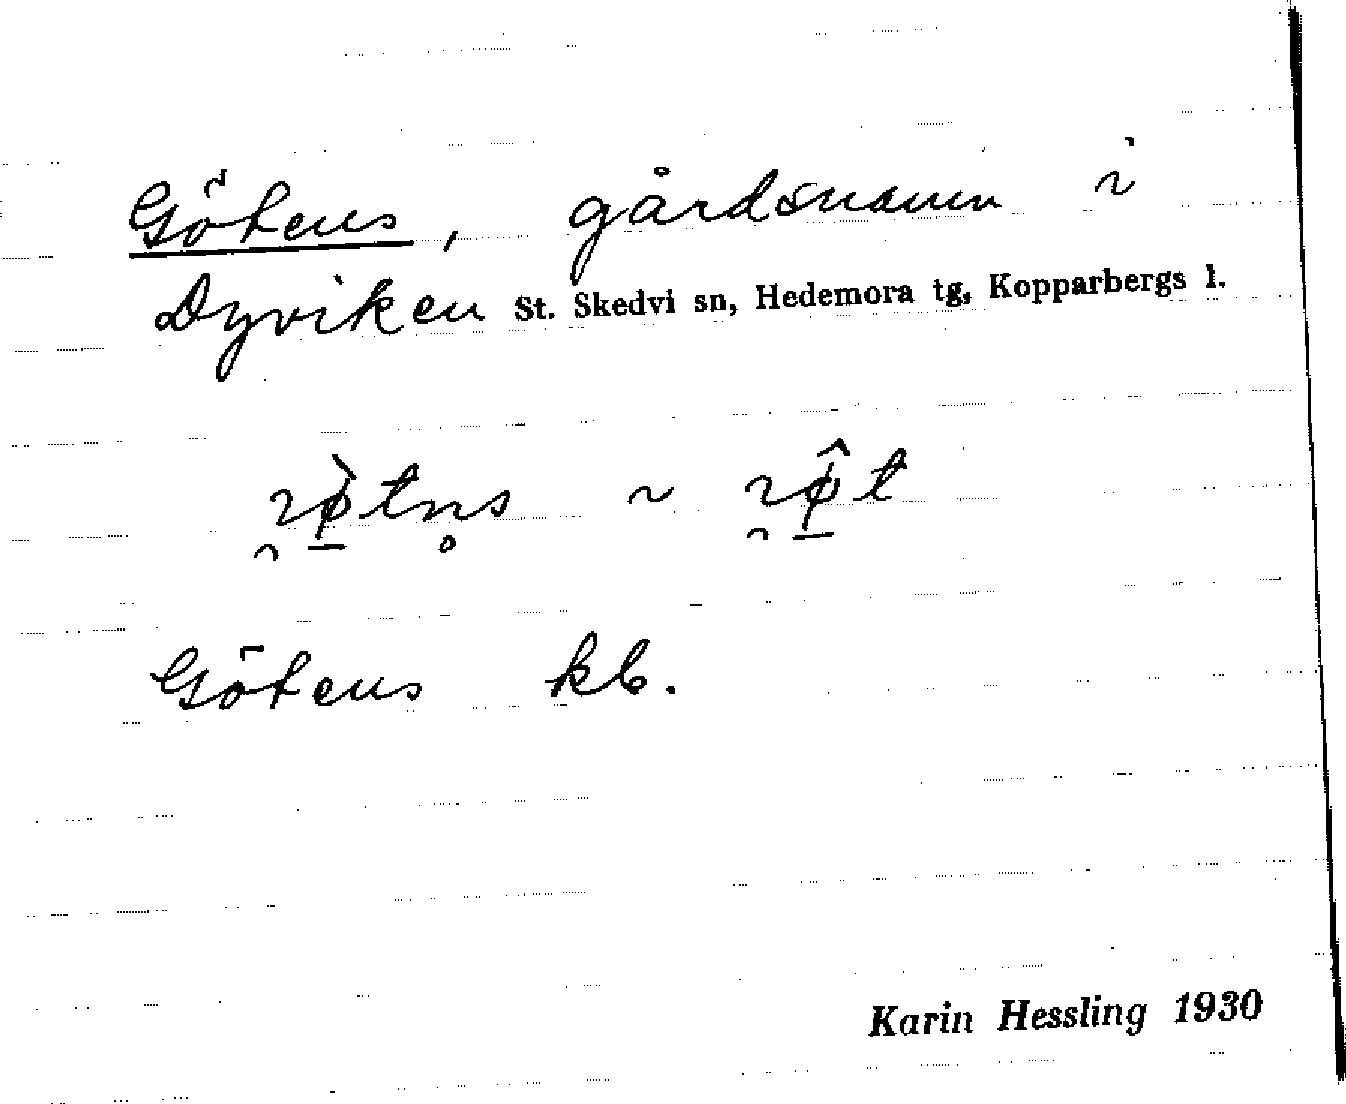 Götens, gårdsnamn i
Dyviken St. Skedvi sn, Hedemora tg, Kopparbergs l.
Götens kb.
Karin Hessling 1930